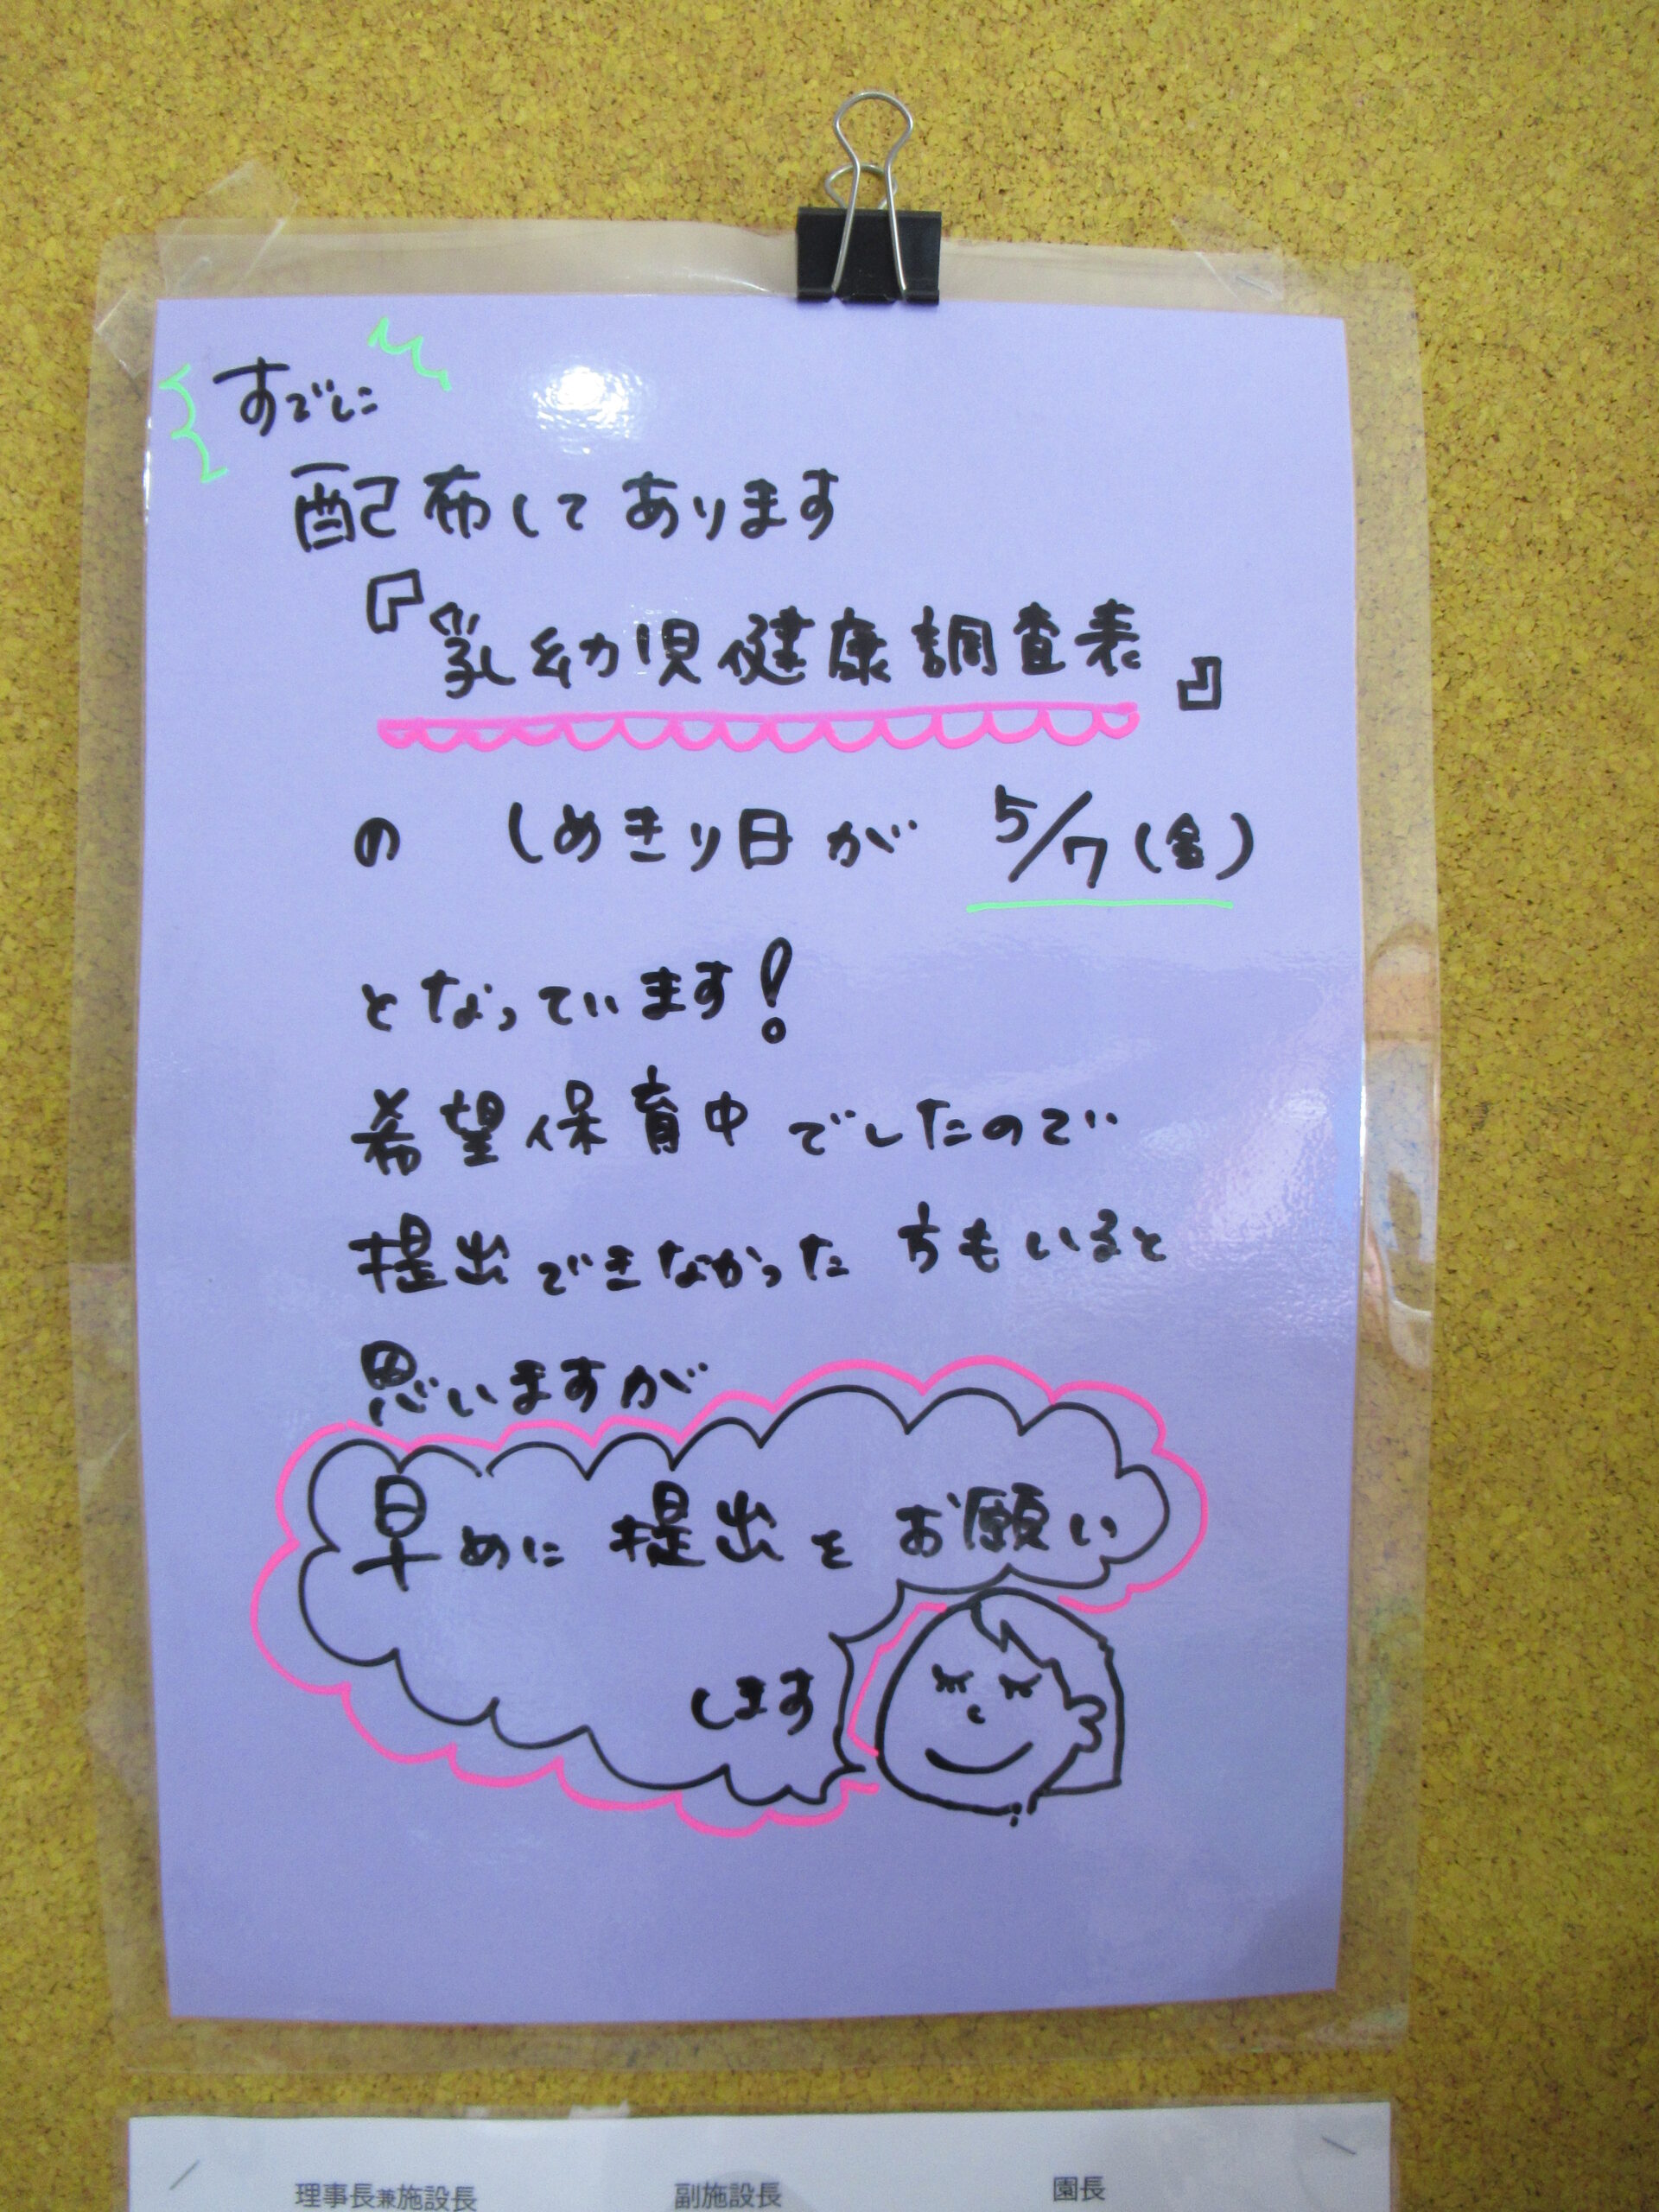 すでに
配布してあります
『乳幼児健康調査表』
の しめきり日が 5/7(金)
となっています!
希望保育中でしたので
提出できなかった方もいると
思いますが
早めに提出をお願い
します
理事長兼施設長 副施設長 園長